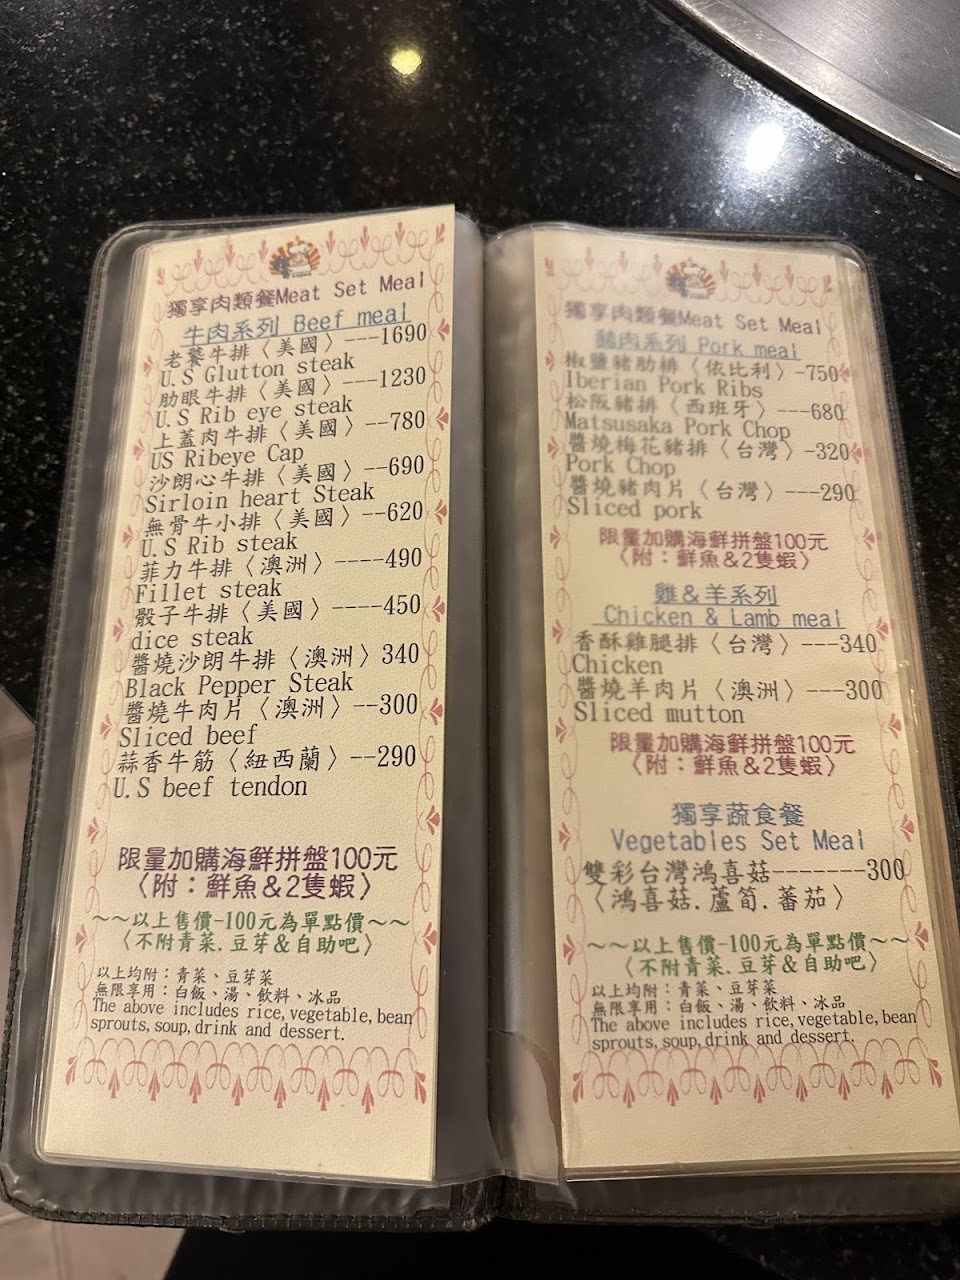 獨享肉類餐Meat Set Meal
牛肉系列 Beef meal
老饕牛排〈美國〉---1690
U.S Glutton steak
肋眼牛排〈美國〉---1230
U.S Rib eye steak
上蓋肉牛排〈美國〉--780
US Ribeye Cap
沙朗心牛排〈美國〉--690
Sirloin heart Steak
無骨牛小排〈美國〉--620
U.S Rib steak
菲力牛排〈澳洲〉----490
Fillet steak
骰子牛排〈美國〉----450
dice steak
醬燒沙朗牛排〈澳洲〉340
Black Pepper Steak
醬燒牛肉片〈澳洲〉--300
Sliced beef
蒜香牛筋〈紐西蘭〉--290
U.S beef tendon
限量加購海鮮拼盤100元
〈附：鮮魚&2隻蝦〉
~~以上售價-100元為單點價~~
〈不附青菜.豆芽&自助吧〉
以上均附：青菜、豆芽菜
無限享用：白飯、湯、飲料、冰品
The above includes rice, vegetable, bean
sprouts, soup, drink and dessert.
獨享肉類餐Meat Set Meal
豬肉系列 Pork meal
椒鹽豬肋排〈依比利〉-750
Iberian Pork Ribs
松阪豬排〈西班牙〉---680
Matsusaka Pork Chop
醬燒梅花豬排〈台灣〉-320
Pork Chop
醬燒豬肉片〈台灣〉---290
Sliced pork
限量加購海鮮拼盤100元
〈附：鮮魚&2隻蝦〉
雞&羊系列
Chicken & Lamb meal
香酥雞腿排〈台灣〉---340
Chicken
醬燒羊肉片〈澳洲〉---300
Sliced mutton
限量加購海鮮拼盤100元
〈附：鮮魚&2隻蝦〉
獨享蔬食餐
Vegetables Set Meal
雙彩台灣鴻喜菇-------300
〈鴻喜菇.蘆筍.蕃茄〉
~~以上售價-100元為單點價~~
〈不附青菜.豆芽&自助吧〉
以上均附：青菜、豆芽菜
無限享用：白飯、湯、飲料、冰品
The above includes rice, vegetable, bean
sprouts, soup, drink and dessert.